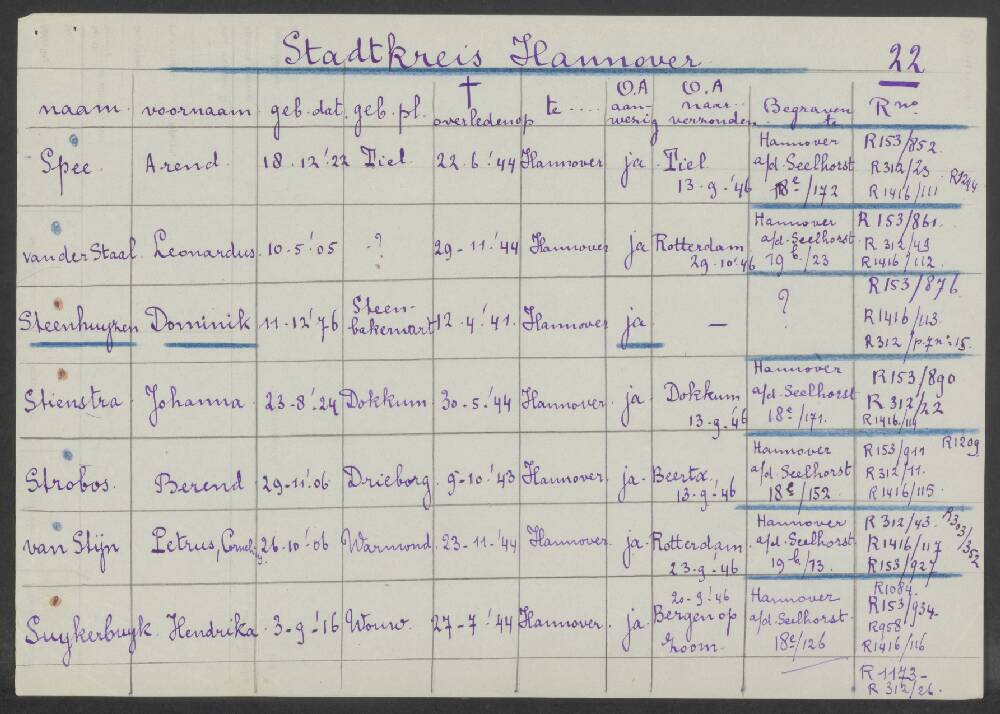 Stadtkreis Hannover 22
naam. voornaam. geb. dat. geb. pl. † overleden op te .... O.A aan-wezig O.A naar.. verzonden Begraven te R no.
Spee. Arend. 18-12-'22 Tiel 22-6-'44 Hannover ja Tiel. 13-9-'46 Hannover a/d Seelhorst 18e/172 R153/852. R312/23 R1416/111 R1294
van der Staal. Leonardus. 10-5-'05 -? 29-11-'44 Hannover ja Rotterdam 29-10-'46 Hannover a/d. Seelhorst 19b./23 R 153/861. R 312/49 R1416/112.
Steenhuyzen Dominik 11-12-'76 Steen-bakemaart 12-4-'41. Hannover ja — ? R153/876 R1416/113. R312/p.7nº.15.
Stienstra Johanna 23-8-'24 Dokkum 30-5-'44 Hannover. ja. Dokkum 13-9-'46 Hannover a/d. Seelhorst 18e/171. R153/890 R 312/22 R1416/114
Strobos. Berend 29-11-'06 Drieborg. 9-10-'43 Hannover. ja. Beerta. 13-9-'46 Hannover a/d. Seelhorst 18e/152. R153/911 R312/11. R1416/115. R1209
van Stijn Petrus, Cornelis 26-10-'06 Warmond. 23-11-'44 Hannover. ja. Rotterdam. 23-9-'46 Hannover a/d. Seelhorst. 19b/73. R312/43. R1416/117 R153/927 R303/352
Suykerbuyk Hendrika. 3-9-'16 Wouw. 27-7-'44 Hannover. ja. 20-9-'46 Bergen op Zoom. Hannover a/d. Seelhorst. 18e/126 R1084. R153/934. R958 R1416/116
R1173- R 312/26.